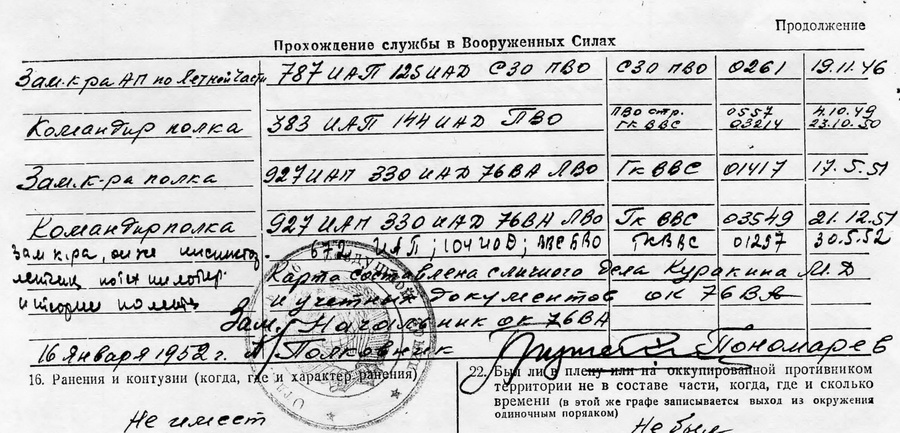 Продолжение
Прохождение службы в Вооруженных Силах
Зам. к-ра АП по летной части 787 ИАП 125 ИАД СЗО ПВО СЗО ПВО 0261 19.11.46
Командир полка 383 ИАП 144 ИАД ПВО ПВО стр. 0557 4.10.49
ГК ВВС 03214 23.10.50
Зам. к-ра полка 927 ИАП 330 ИАД 76 ВА ЛВО ГК ВВС 01417 17.5.51
Командир полка 927 ИАП 330 ИАД 76 ВА ЛВО ГК ВВС 03549 21.12.51
Зам к-ра, он же ИАП; ВВС БВО ГК ВВС 01297 30.5.52
Карта составлена с личного дела Куракина М.Д
и учетных документов ОК 76 ВА
Зам. Начальник ОК 76 ВА
16 Января 1952 г. Полковник Пономарев
16. Ранения и контузии (когда, где и характер ранения)
Не имеет
22. Был ли в плену или на оккупированной противником
территории не в составе части, когда, где и сколько
времени (в этой же графе записывается выход из окружения
одиночным порядком)
Не был